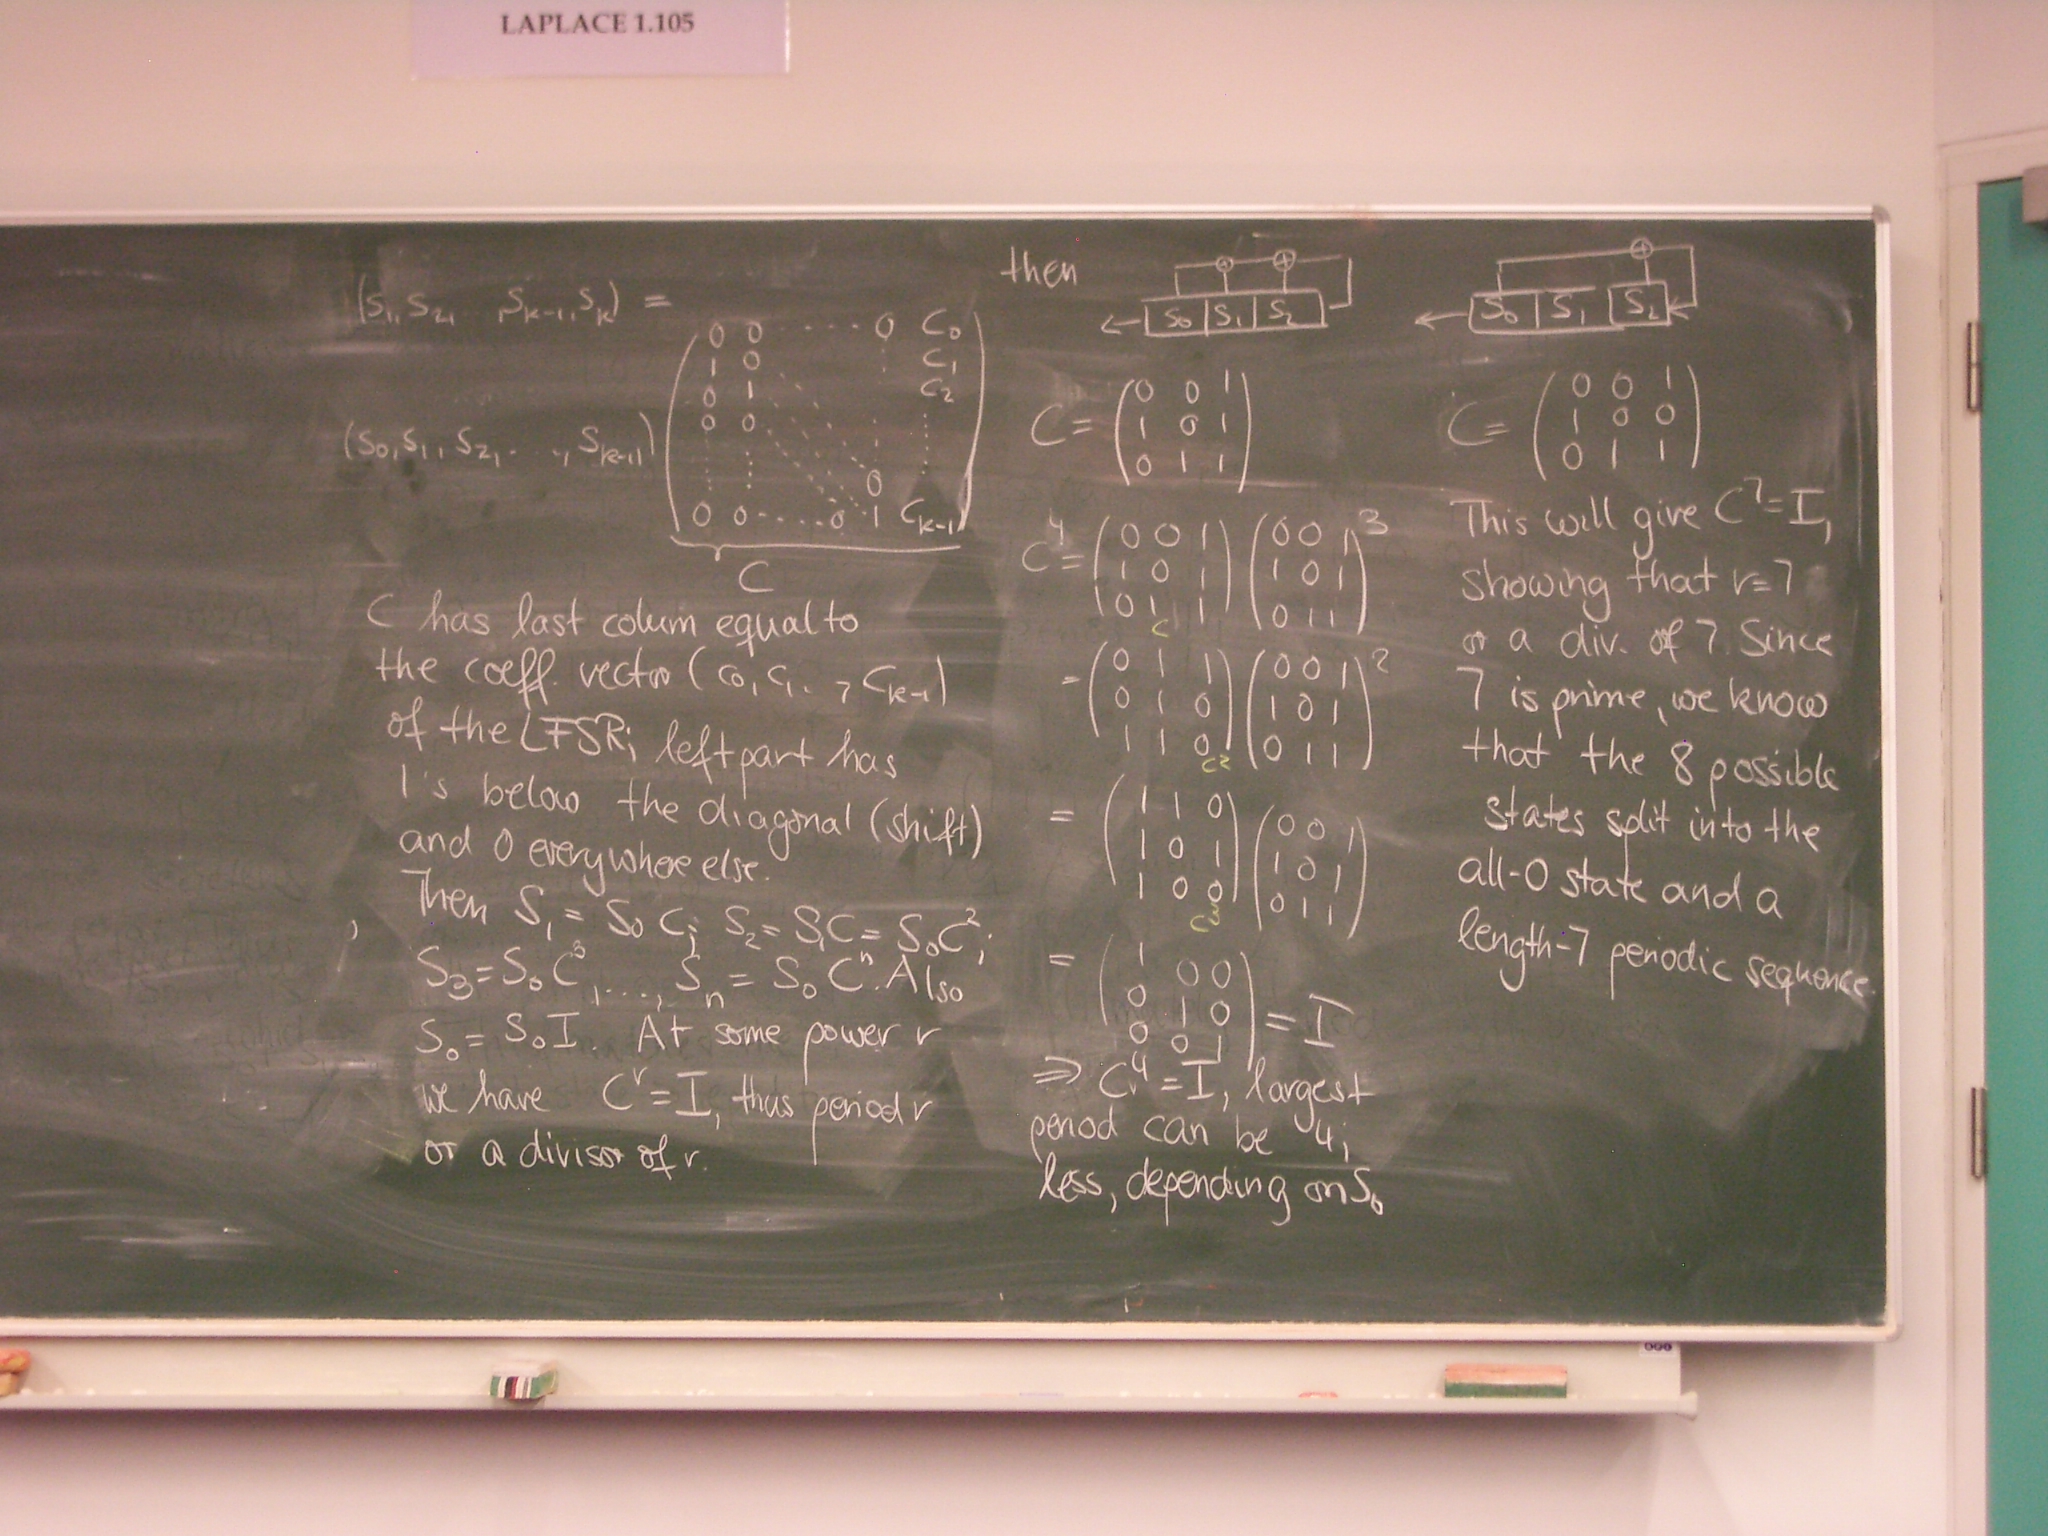 LAPLACE 1.105
(S₁, S₂, ..., Sₖ₋₁, Sₖ) =
(S₀, S₁, S₂, ..., Sₖ₋₁)
0 0 ..... 0 C₀
1 0 C₁
0 1 C₂
0 0
0
0 0 ..... 0 1 Cₖ₋₁
C
C has last colum equal to
the coeff. vector (c₀, c₁.., cₖ₋₁)
of the LFSR; left part has
1's below the diagonal (shift)
and 0 everywhere else.
Then S₁ = S₀ C; S₂ = S₁C = S₀C²;
S₃ = S₀C³, ...., Sₙ = S₀ Cⁿ. Also
S₀ = S₀I. At some power r
we have Cʳ = I, thus period r
or a divisor of r.
then
+ +
S₀ S₁ S₂
C = (0 0 1
1 0 1
0 1 1)
C⁴ = (0 0 1) (0 0 1)³
1 0 1 1 0 1
0 1 1 0 1 1
C
= (0 1 1) (0 0 1)²
0 1 0 1 0 1
1 1 0 0 1 1
C²
= (1 1 0) (0 0 1)
1 0 1 1 0 1
1 0 0 0 1 1
C³
= (1 0 0
0 1 0
0 0 1) = I
⇒ C⁴ = I, largest
period can be 4;
less, depending on S₀
+
S₀ S₁ S₂
C = (0 0 1
1 0 0
0 1 1)
This will give C⁷ = I,
showing that r = 7
or a div. of 7. Since
7 is prime, we know
that the 8 possible
states split into the
all-0 state and a
length-7 periodic sequence.